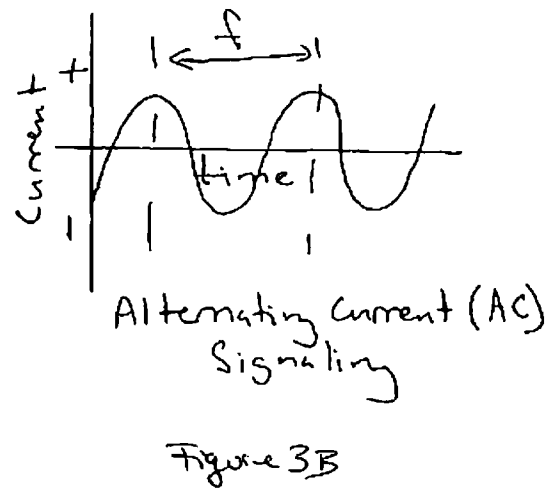 f
+
Current
time
-
Alternating Current (AC)
Signaling
Figure 3B